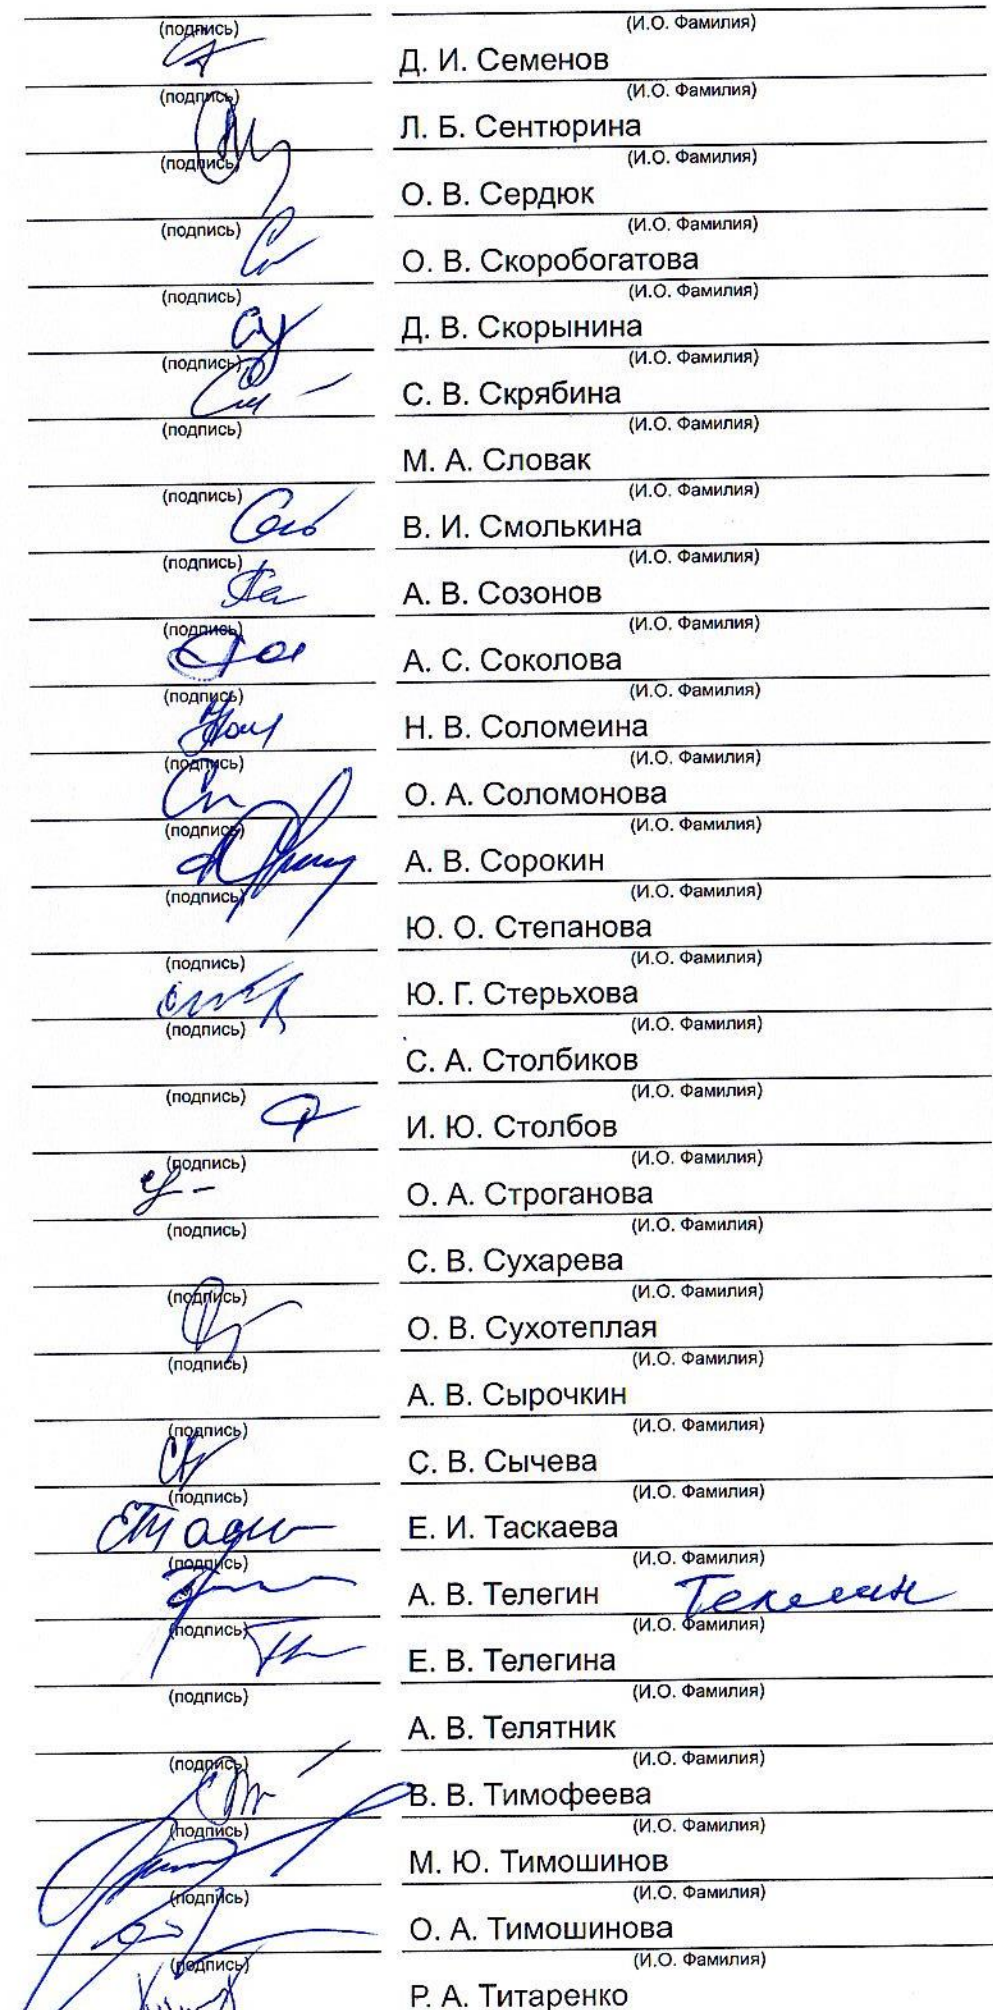 (подпись) (И.О. Фамилия)
Д. И. Семенов
(подпись) (И.О. Фамилия)
Л. Б. Сентюрина
(подпись) (И.О. Фамилия)
О. В. Сердюк
(подпись) (И.О. Фамилия)
О. В. Скоробогатова
(подпись) (И.О. Фамилия)
Д. В. Скорынина
(подпись) (И.О. Фамилия)
С. В. Скрябина
(подпись) (И.О. Фамилия)
М. А. Словак
(подпись) (И.О. Фамилия)
В. И. Смолькина
(подпись) (И.О. Фамилия)
А. В. Созонов
(подпись) (И.О. Фамилия)
А. С. Соколова
(подпись) (И.О. Фамилия)
Н. В. Соломеина
(подпись) (И.О. Фамилия)
О. А. Соломонова
(подпись) (И.О. Фамилия)
А. В. Сорокин
(подпись) (И.О. Фамилия)
Ю. О. Степанова
(подпись) (И.О. Фамилия)
Ю. Г. Стерьхова
(подпись) (И.О. Фамилия)
С. А. Столбиков
(подпись) (И.О. Фамилия)
И. Ю. Столбов
(подпись) (И.О. Фамилия)
О. А. Строганова
(подпись) (И.О. Фамилия)
С. В. Сухарева
(подпись) (И.О. Фамилия)
О. В. Сухотеплая
(подпись) (И.О. Фамилия)
А. В. Сырочкин
(подпись) (И.О. Фамилия)
С. В. Сычева
(подпись) (И.О. Фамилия)
Е. И. Таскаева
(подпись) (И.О. Фамилия)
А. В. Телегин
(подпись) (И.О. Фамилия)
Е. В. Телегина
(подпись) (И.О. Фамилия)
А. В. Телятник
(подпись) (И.О. Фамилия)
В. В. Тимофеева
(подпись) (И.О. Фамилия)
М. Ю. Тимошинов
(подпись) (И.О. Фамилия)
О. А. Тимошинова
(подпись) (И.О. Фамилия)
Р. А. Титаренко